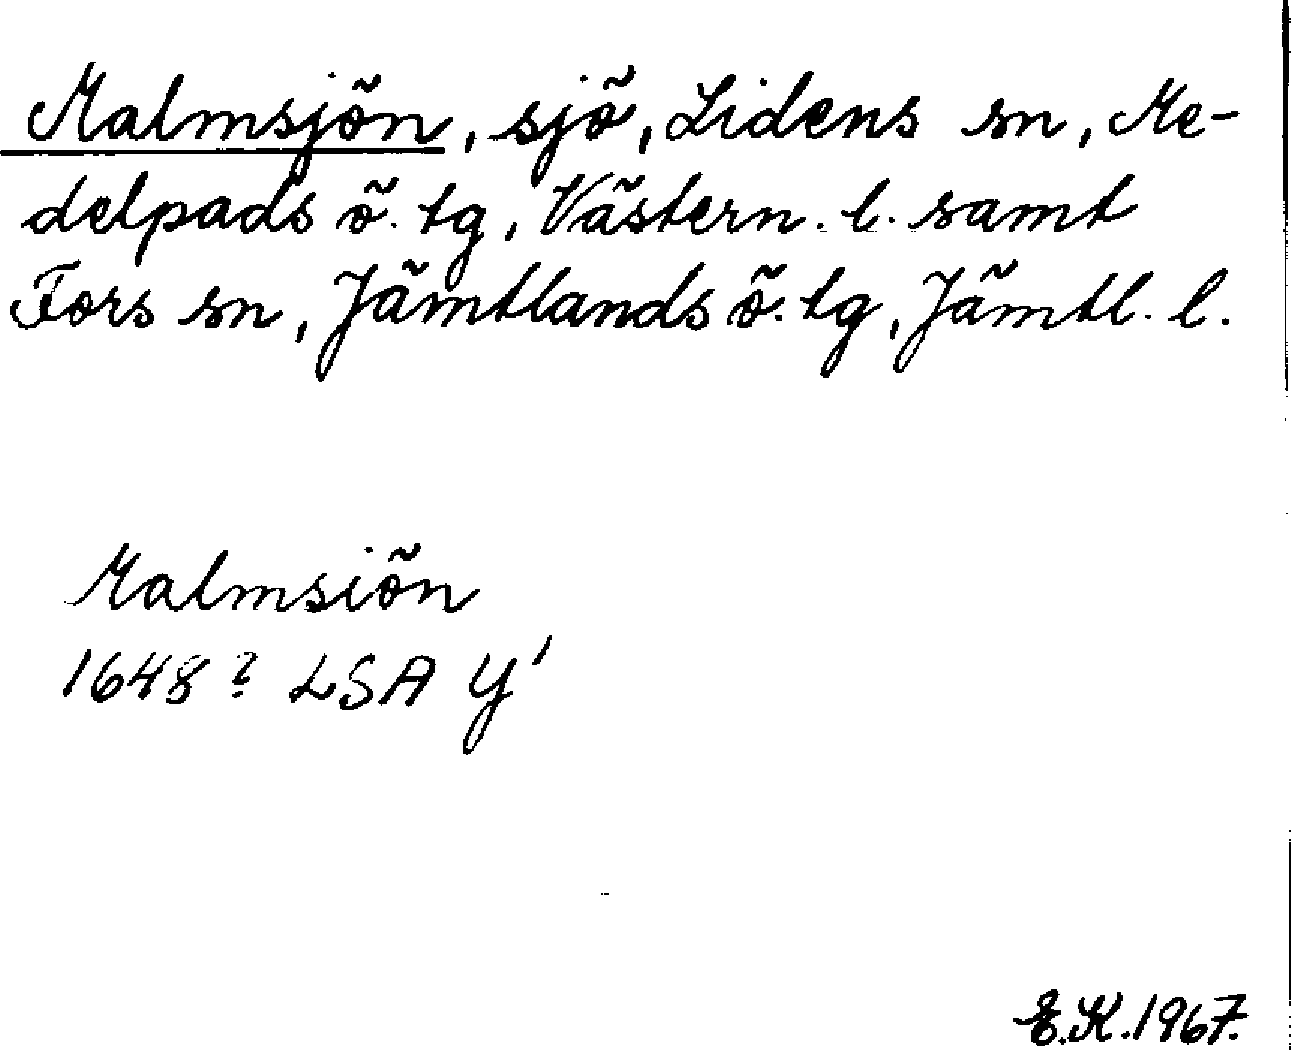 Malmsjön, sjö, Lidens sn, Me-
delpads ö. tg, Västern. l. samt
Fors sn, Jämtlands ö. tg, Jämtl. l.
Malmsiön
1648? LSA Y'
E.K. 1967.